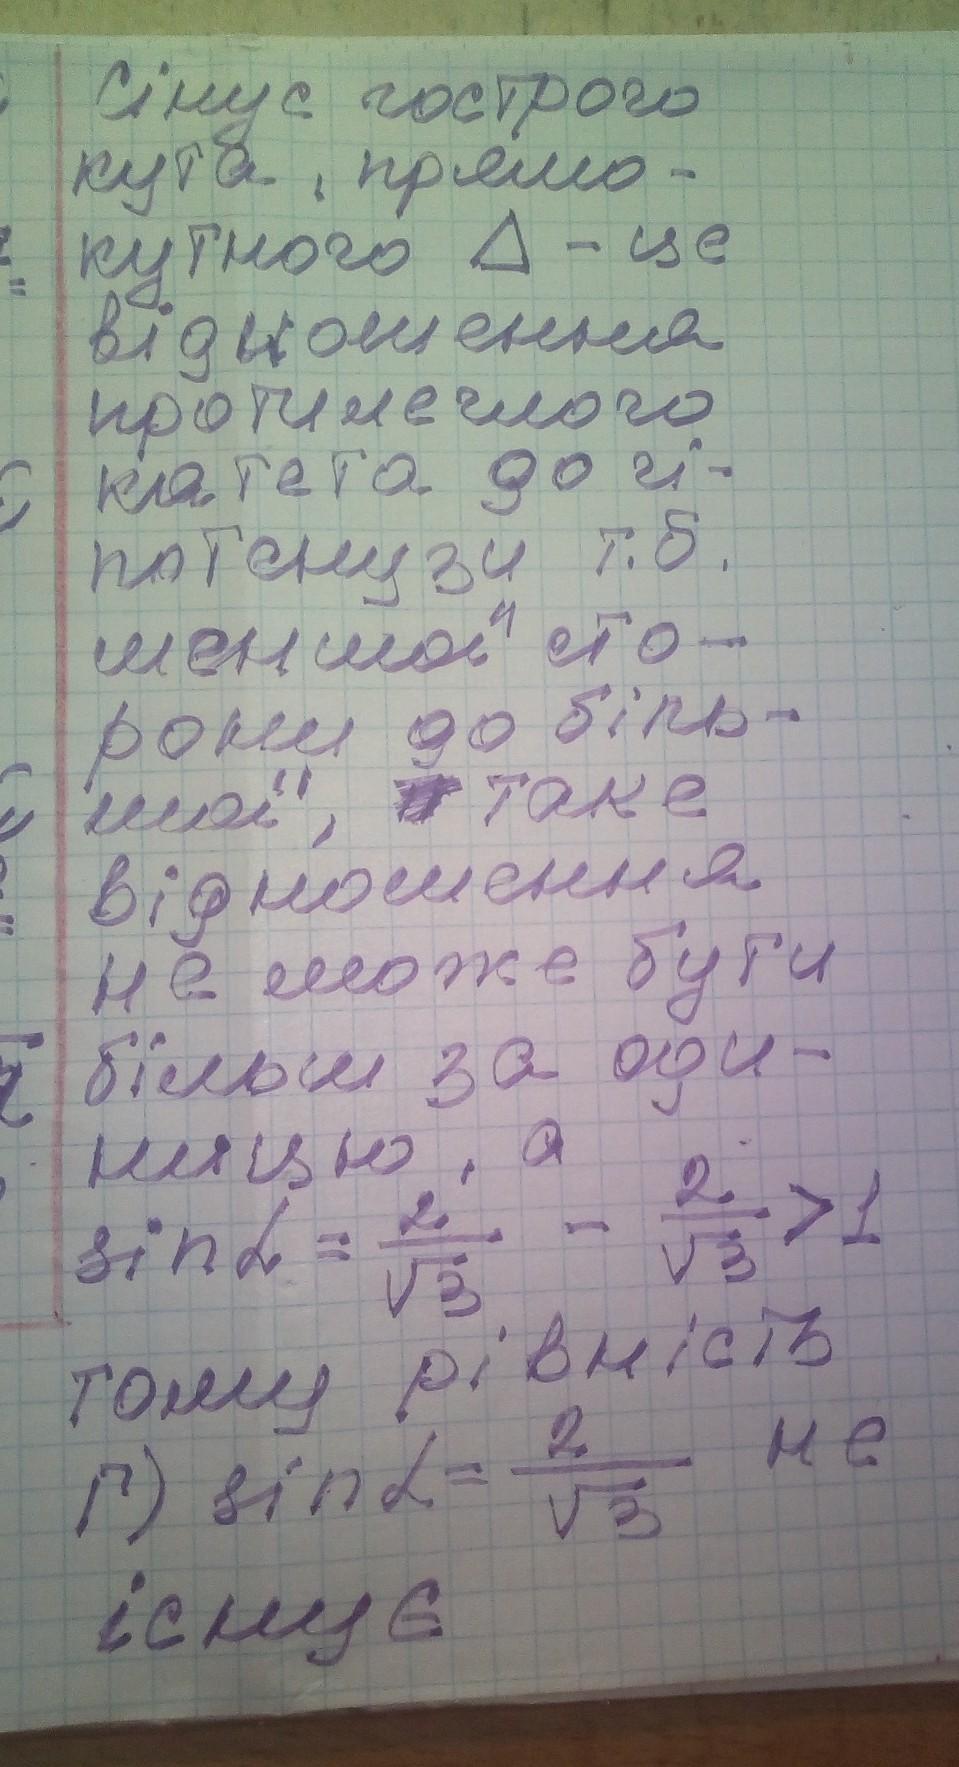 Сінус гострого
кута, прямо-
кутного Δ - це
відношення
протилеглого
катета до гі-
потенузи т.б.
меншої сто-
рони до біль-
шої, таке
відношення
не може бути
більш за оди-
ницю, а
sin α = 2/√3 - 2/√3 > 1
тому рівність
Г) sin α = 2/√3 не
існує